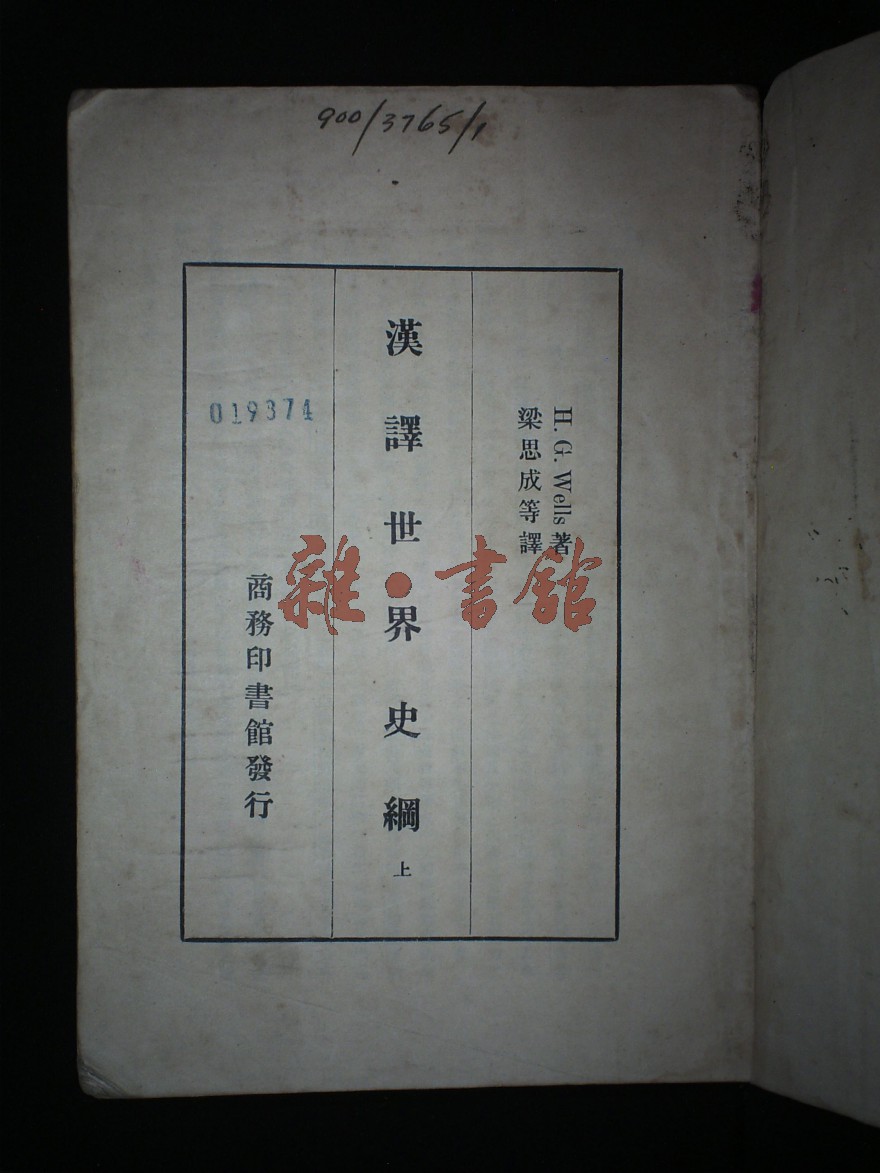 900/3765/1
H. G. Wells 著
梁思成等譯
漢譯世界史綱 上
019374
商務印書館發行
雜·書館